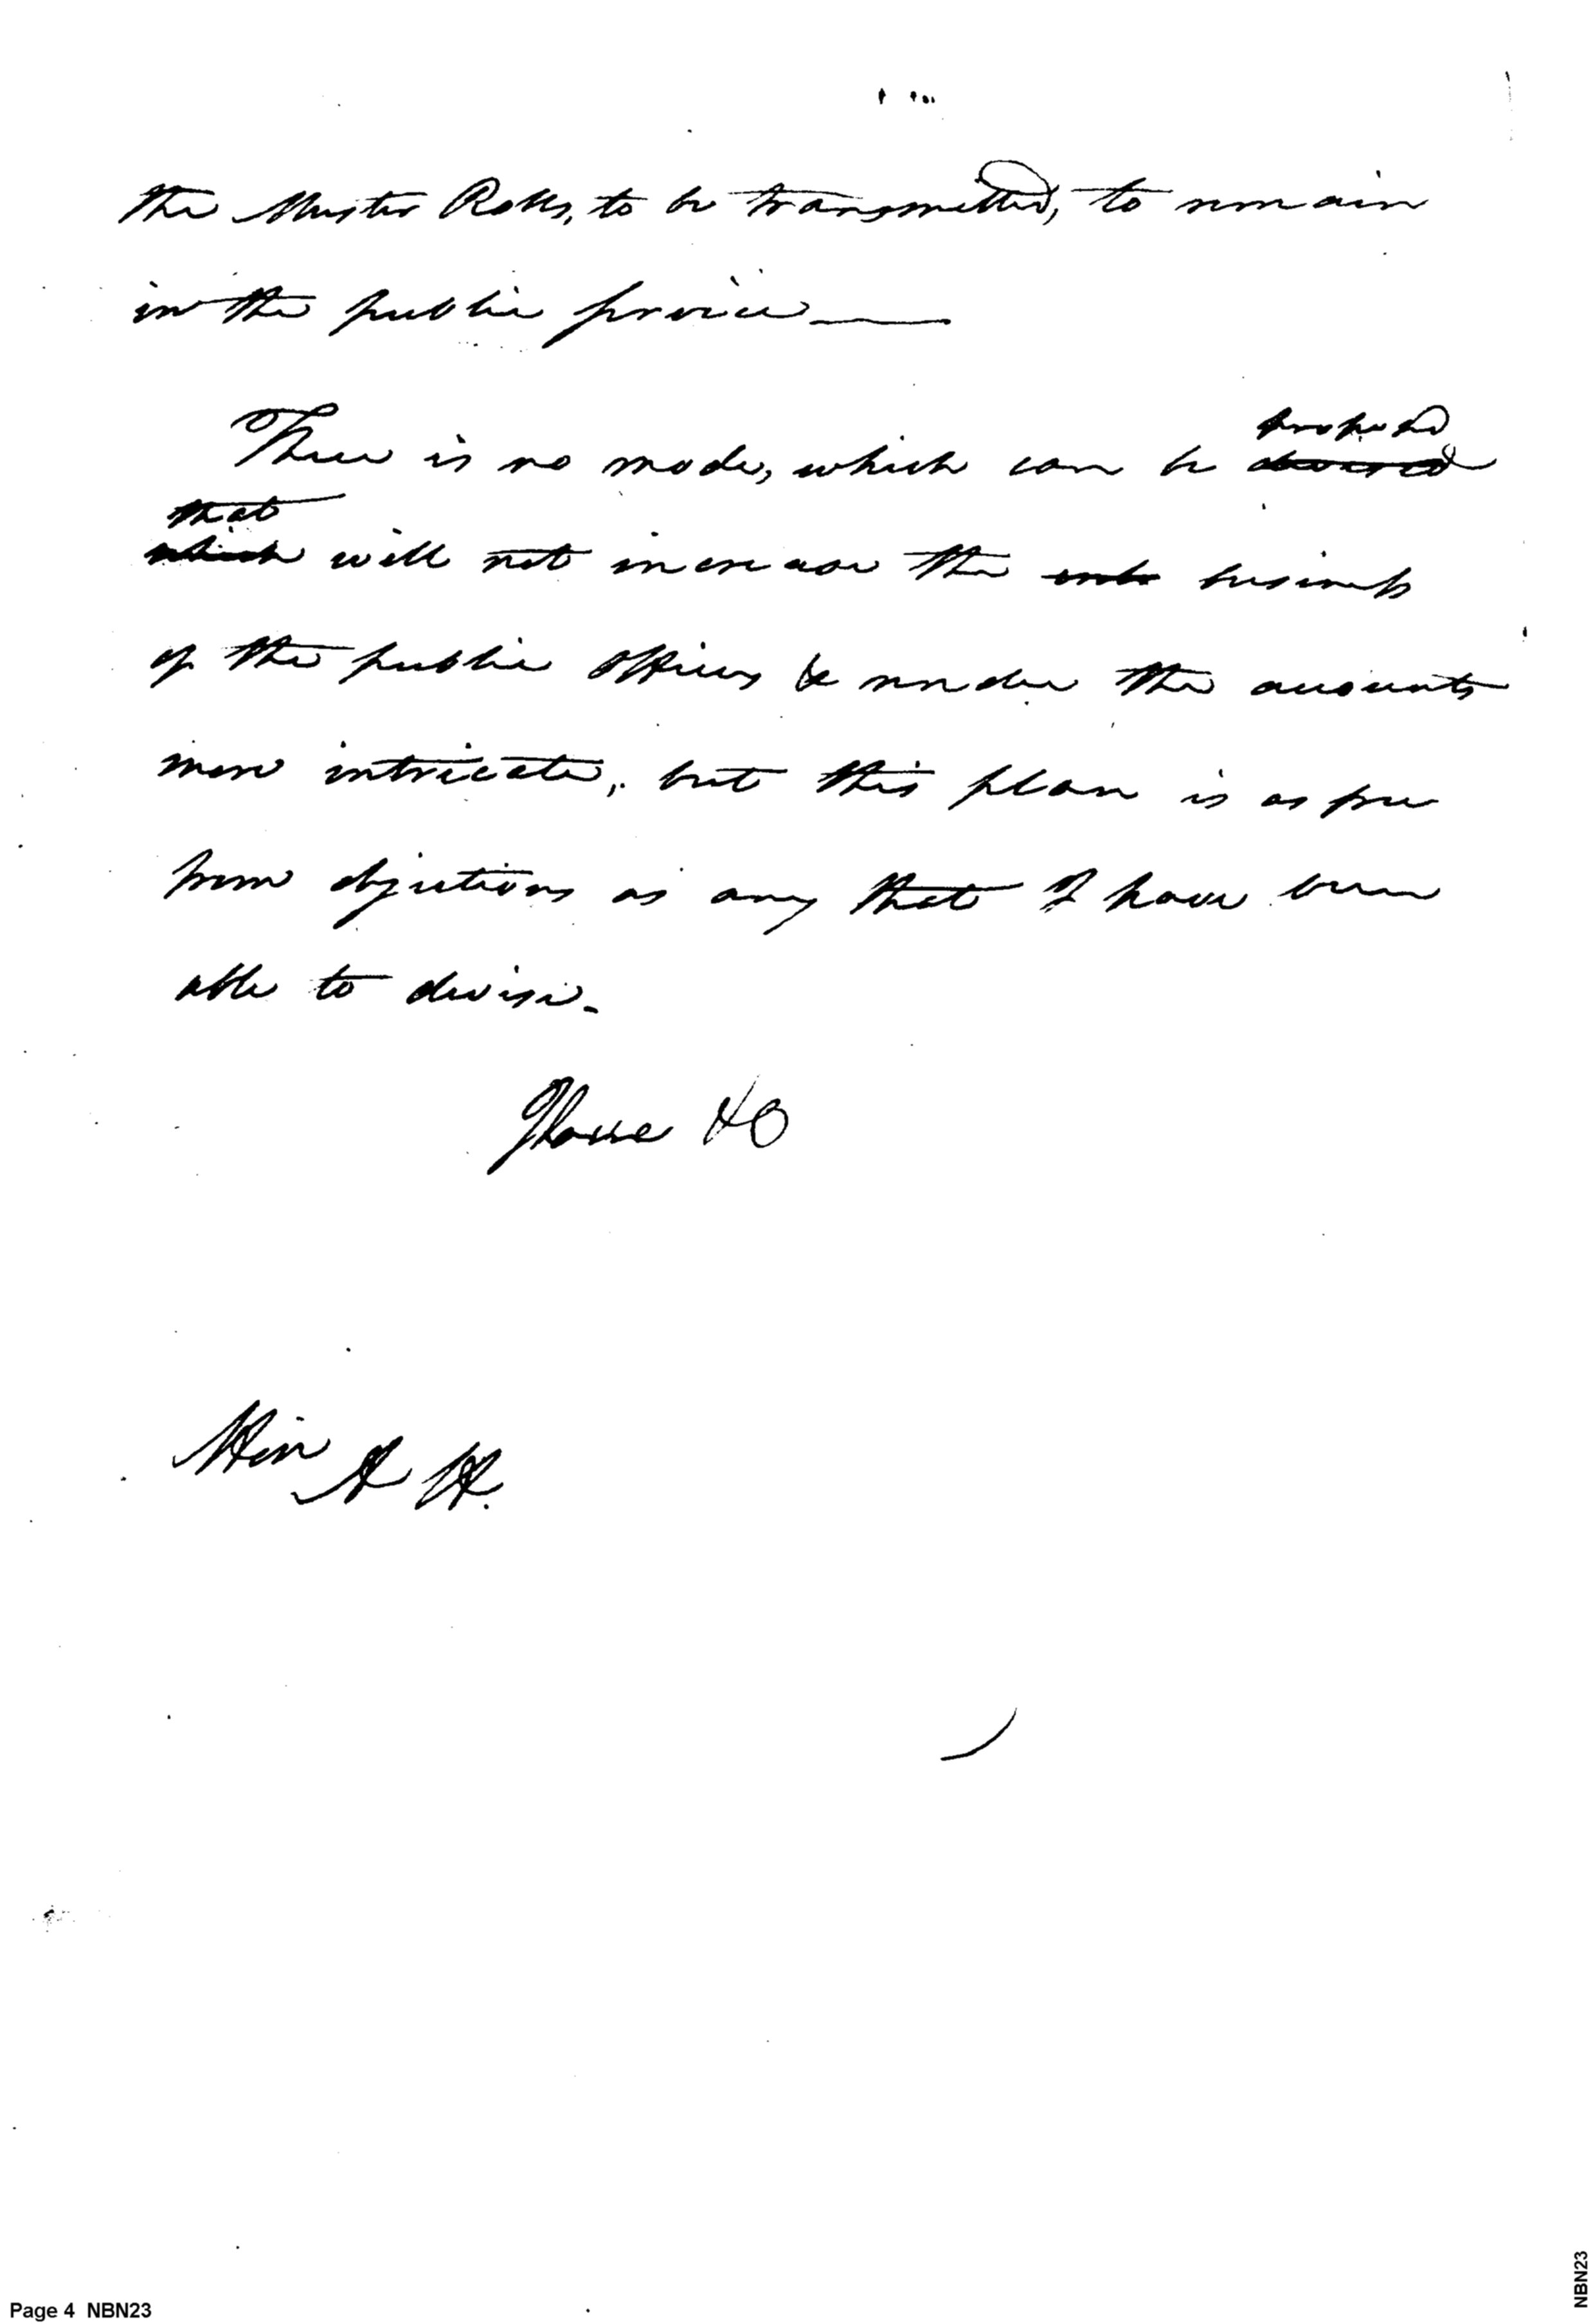 the Muster Rolls, to be transmitted, to remain
in the public service
There is no mode, which can be devised
proposed
that
which will not increase the business
of the public Offices & render the accounts
more intricate, but this plan is as free
from objections as any that I have been
able to devise.
I have &
Min
Page 4 NBN23
NBN23